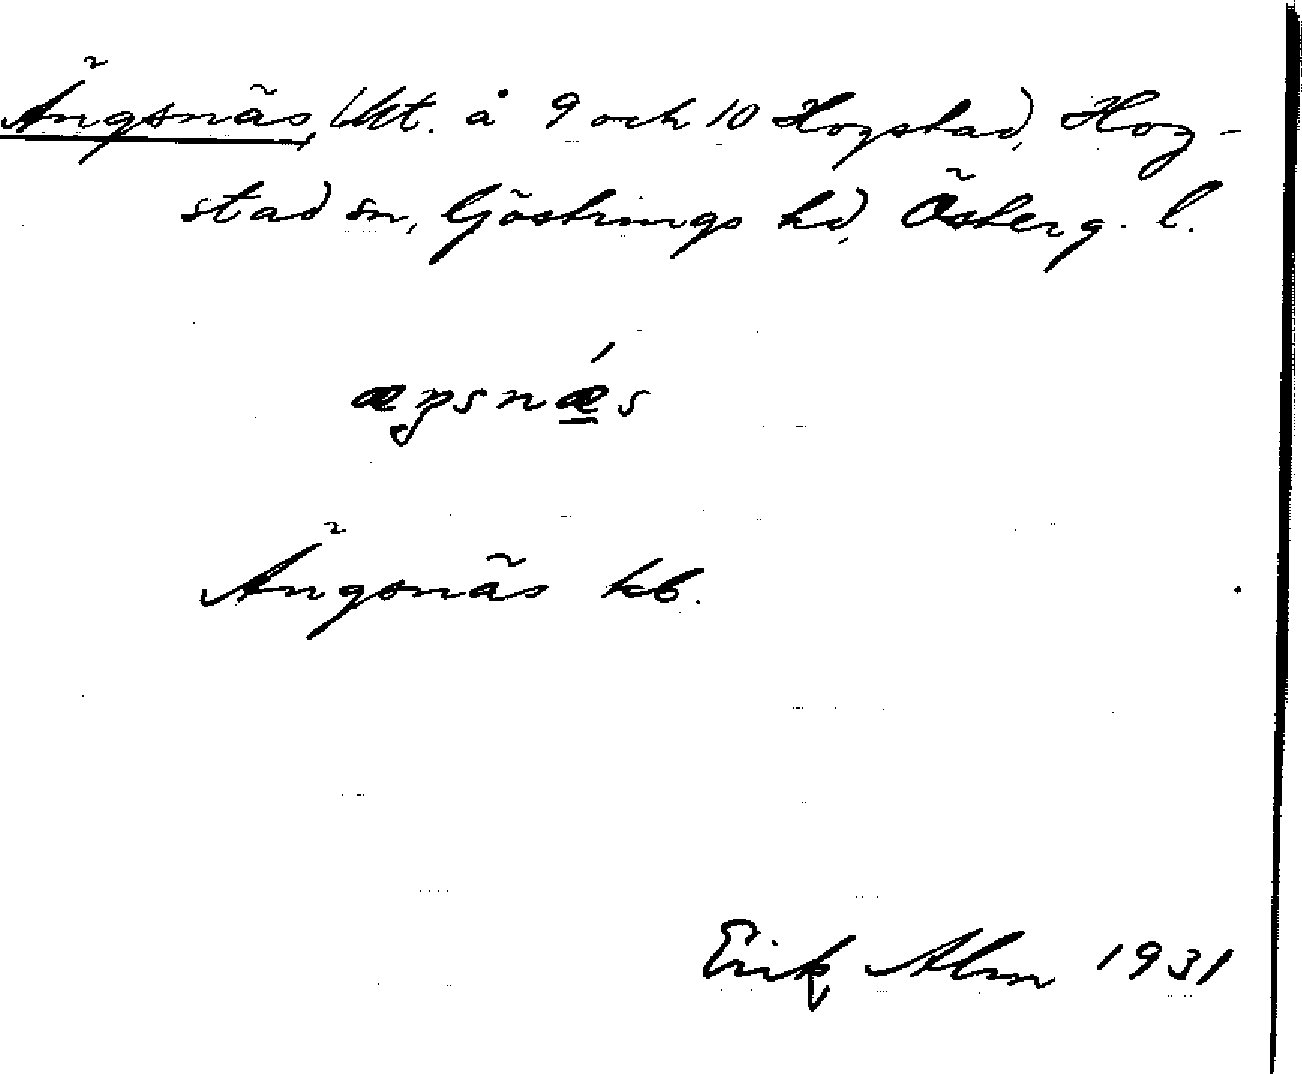 Ängsnäs, Utt. å 9 och 10 Hogstad, Hog-
stad sn, Göstrings hd, Österg. l.
æŋsnǽs
Ängsnäs kb.
Erik Alm 1931